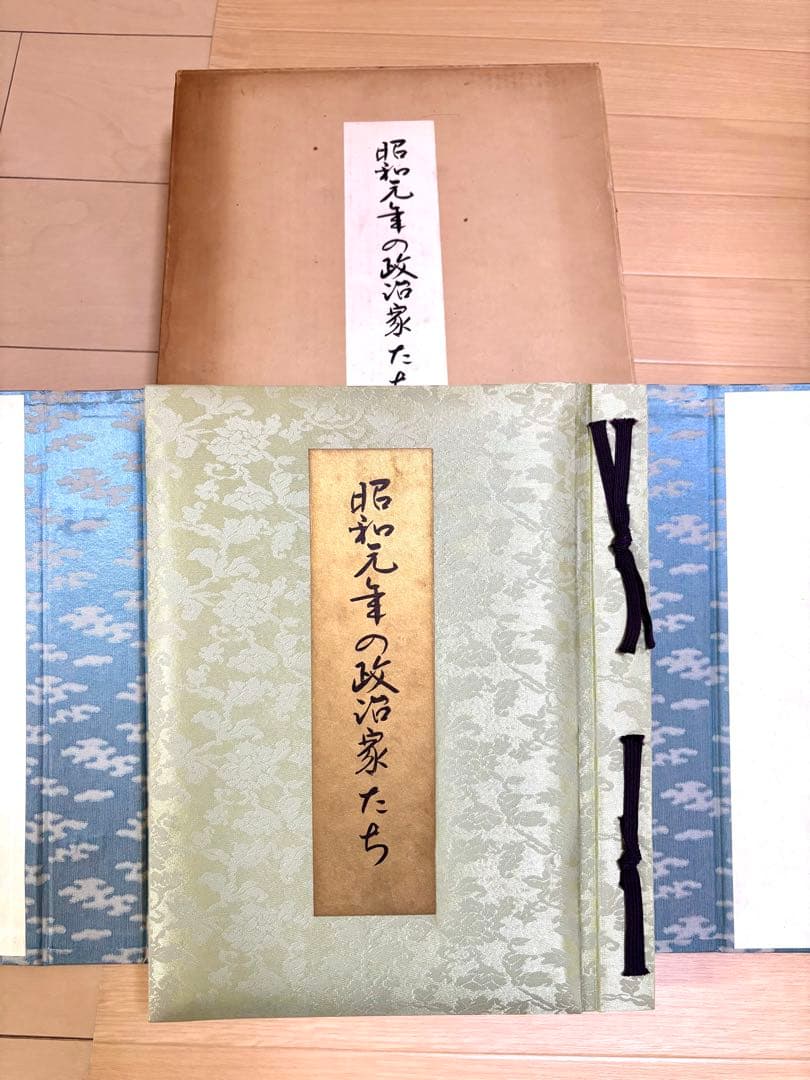 昭和元年の政治家たち
昭和元年の政治家たち